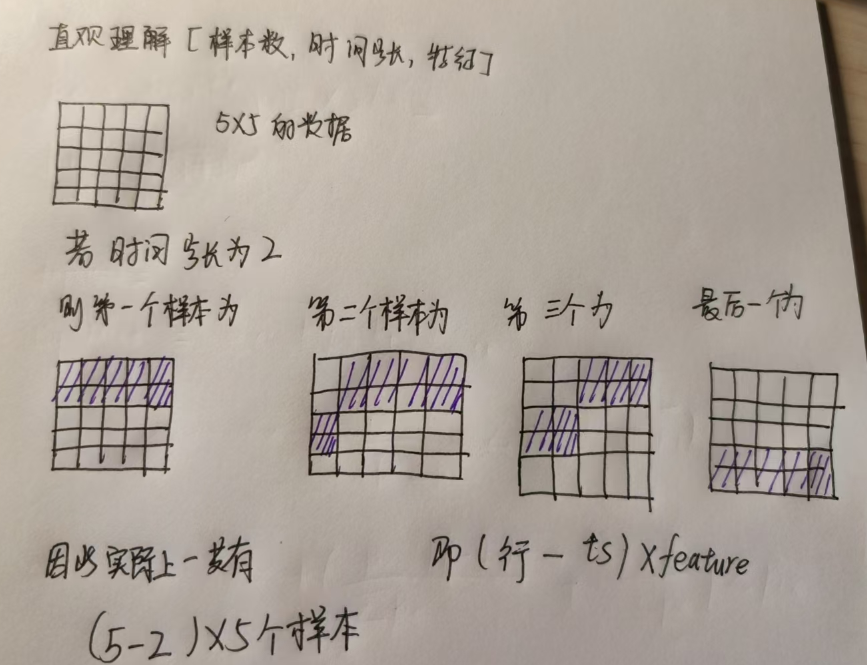 直观理解［样本数,时间步长,特征］
5×5的数据
若时间步长为2
则第一个样本为
第二个样本为
第三个为
最后一个为
因此实际上一共有
(5-2)×5个样本
即(行-ts)×feature